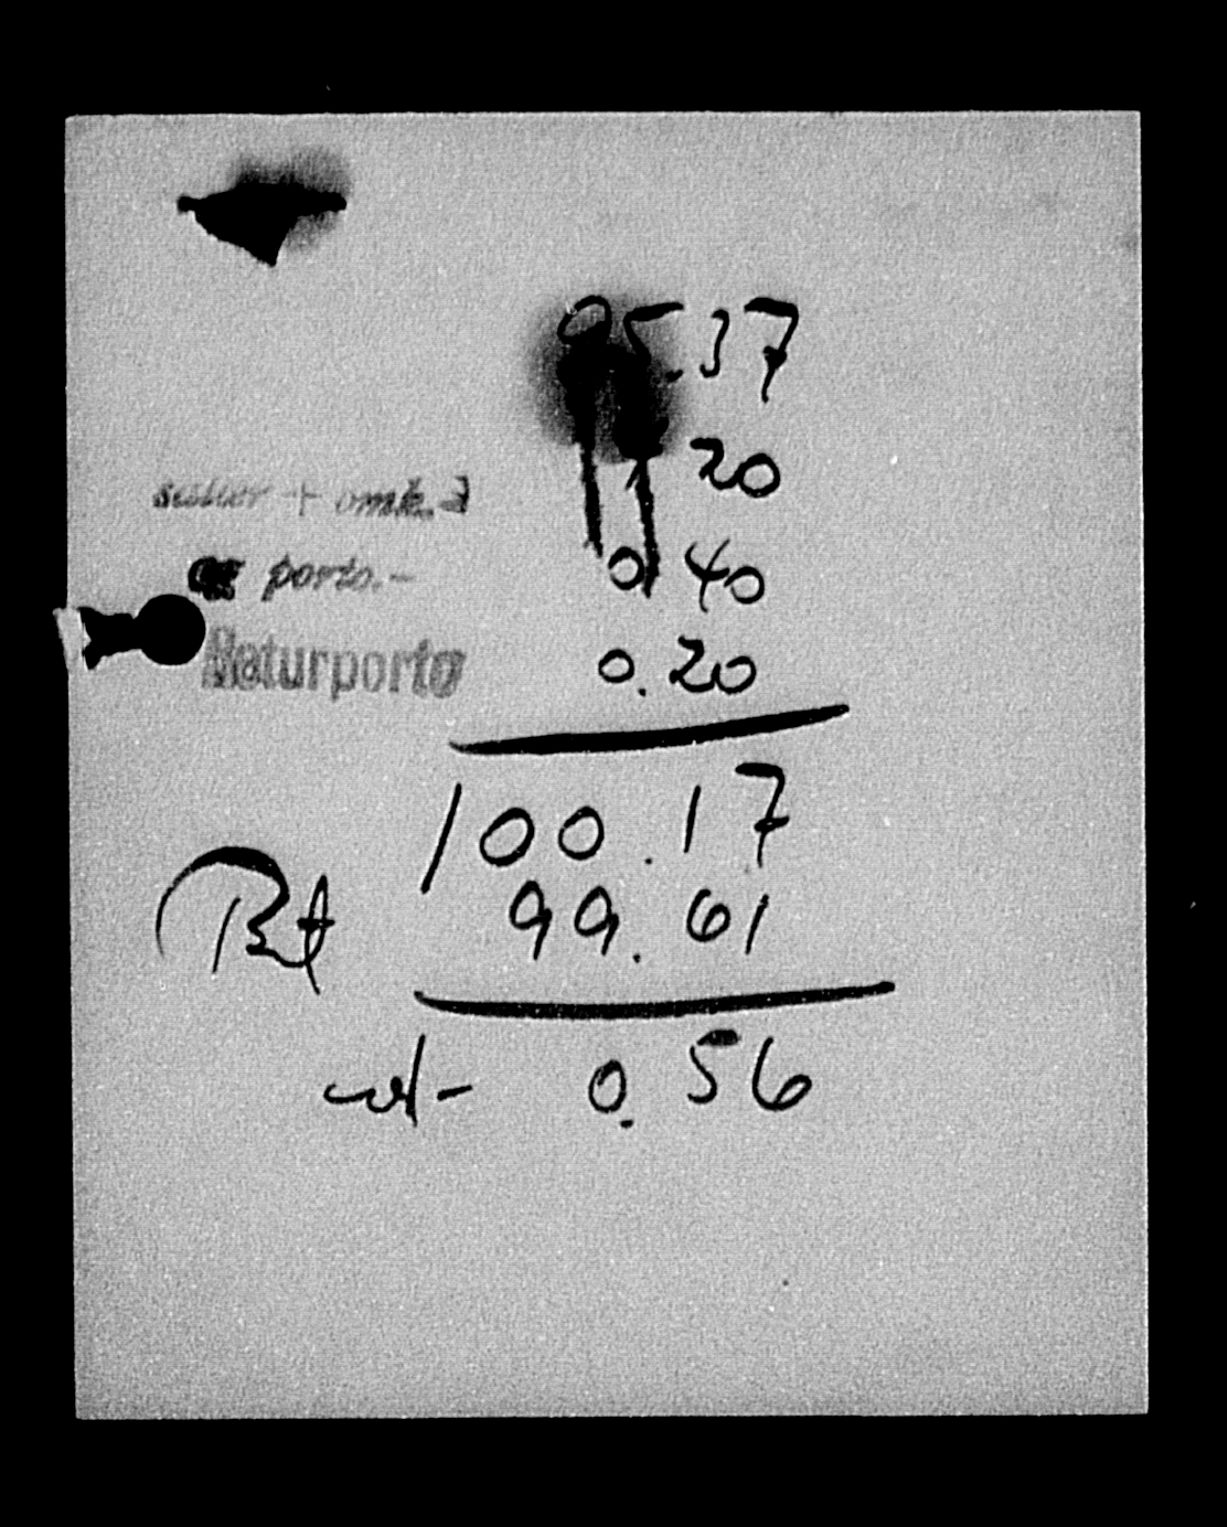 95.37
20
+ omk.
0.40
porto.-
0.20
Returporto
100.17
99.61
0.56